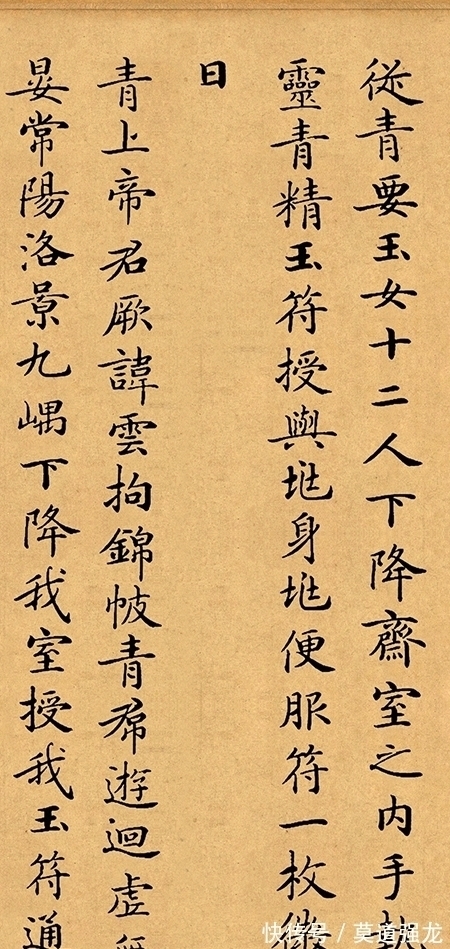 從青要玉女十二人下降齋室之内手
靈青精玉符授與兆身兆便服符一枚
曰
青上帝君厥諱雲拘錦帔青帬遊迴虛
晏常陽洛景九嵎下降我室授我玉符通
快传号/莫道强龙